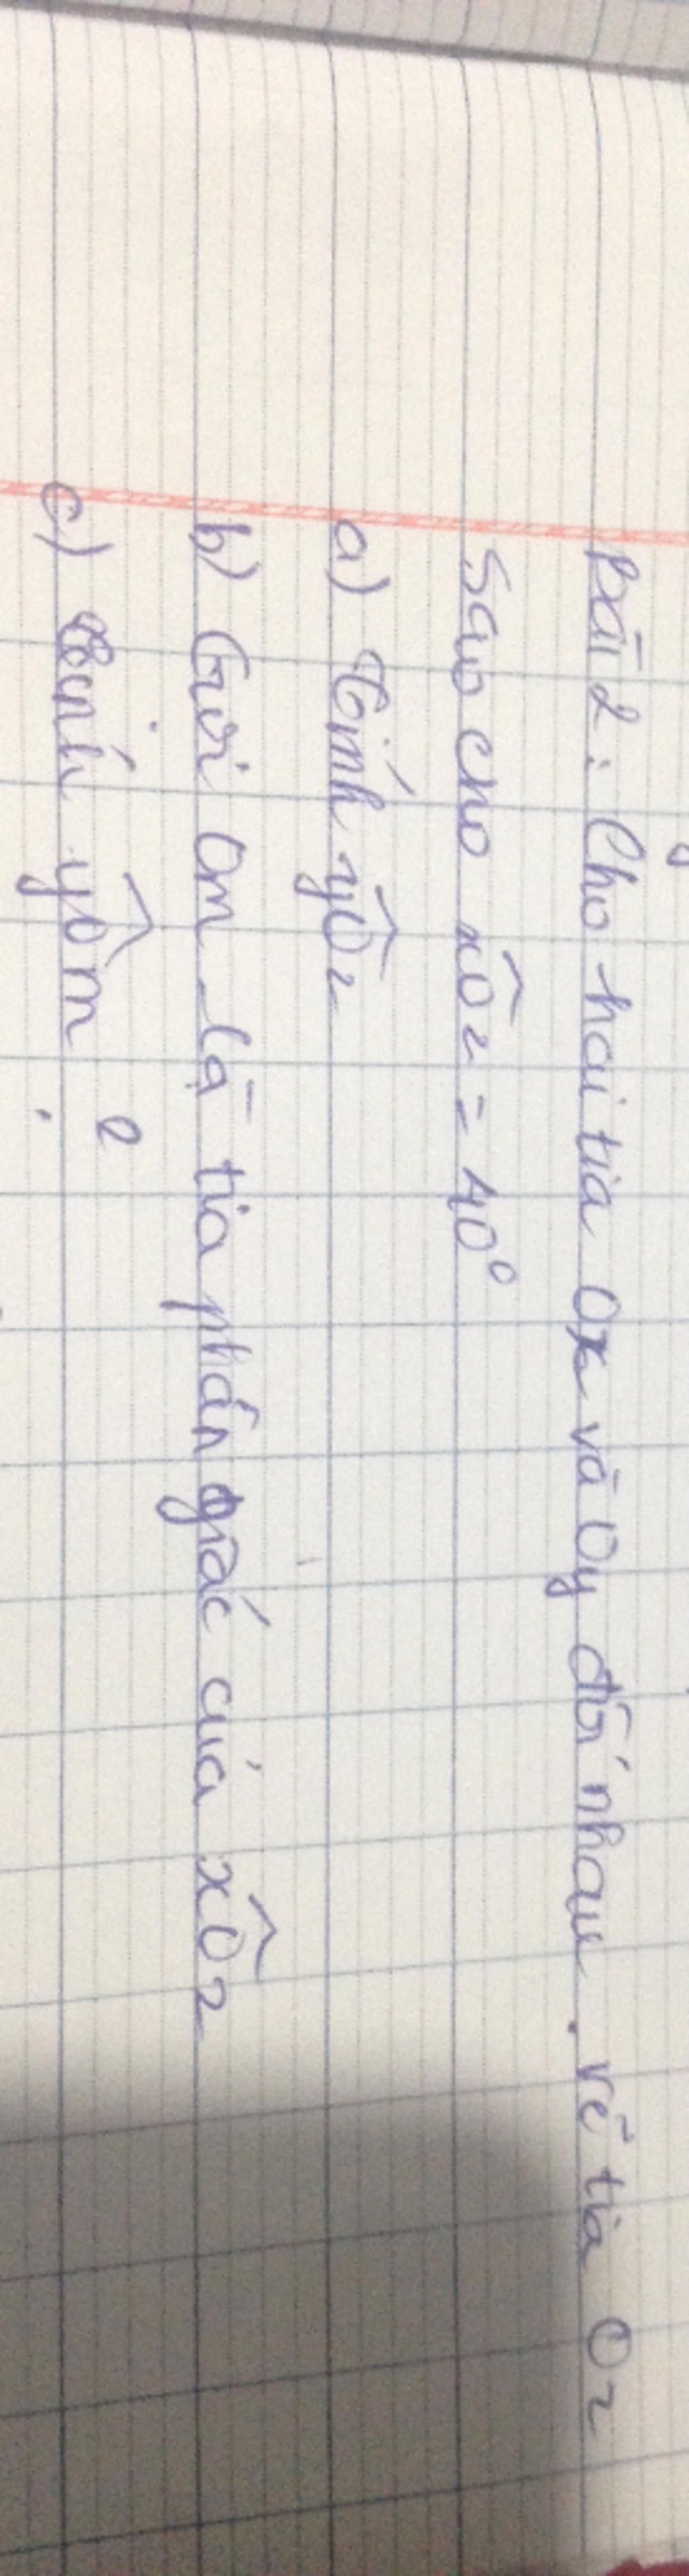 Bài 2: Cho hai tia Ox và Oy đối nhau. vẽ tia Oz
Sao cho xÔz = 40°
a) Tính yÔz
b) Gọi Om là tia phân giác của xÔz
c) Tính yÔm ?